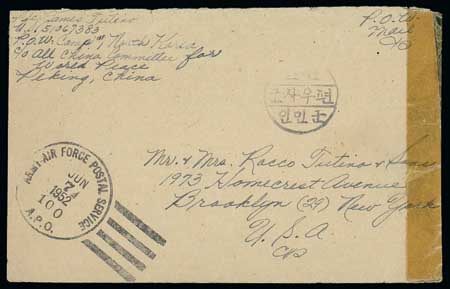 James Tutino
P.O.W. Camp #1 North Korea
c/o All China Committee for
World Peace
Peking, China
P.O.W.
Mail
군사우편
인민군
ARMY-AIR FORCE POSTAL SERVICE
JUN
1952
100
A.P.O.
Mr. & Mrs. Rocco Tutino & Sons
1973 Homecrest Avenue
Brooklyn (29) New York
U.S.A.